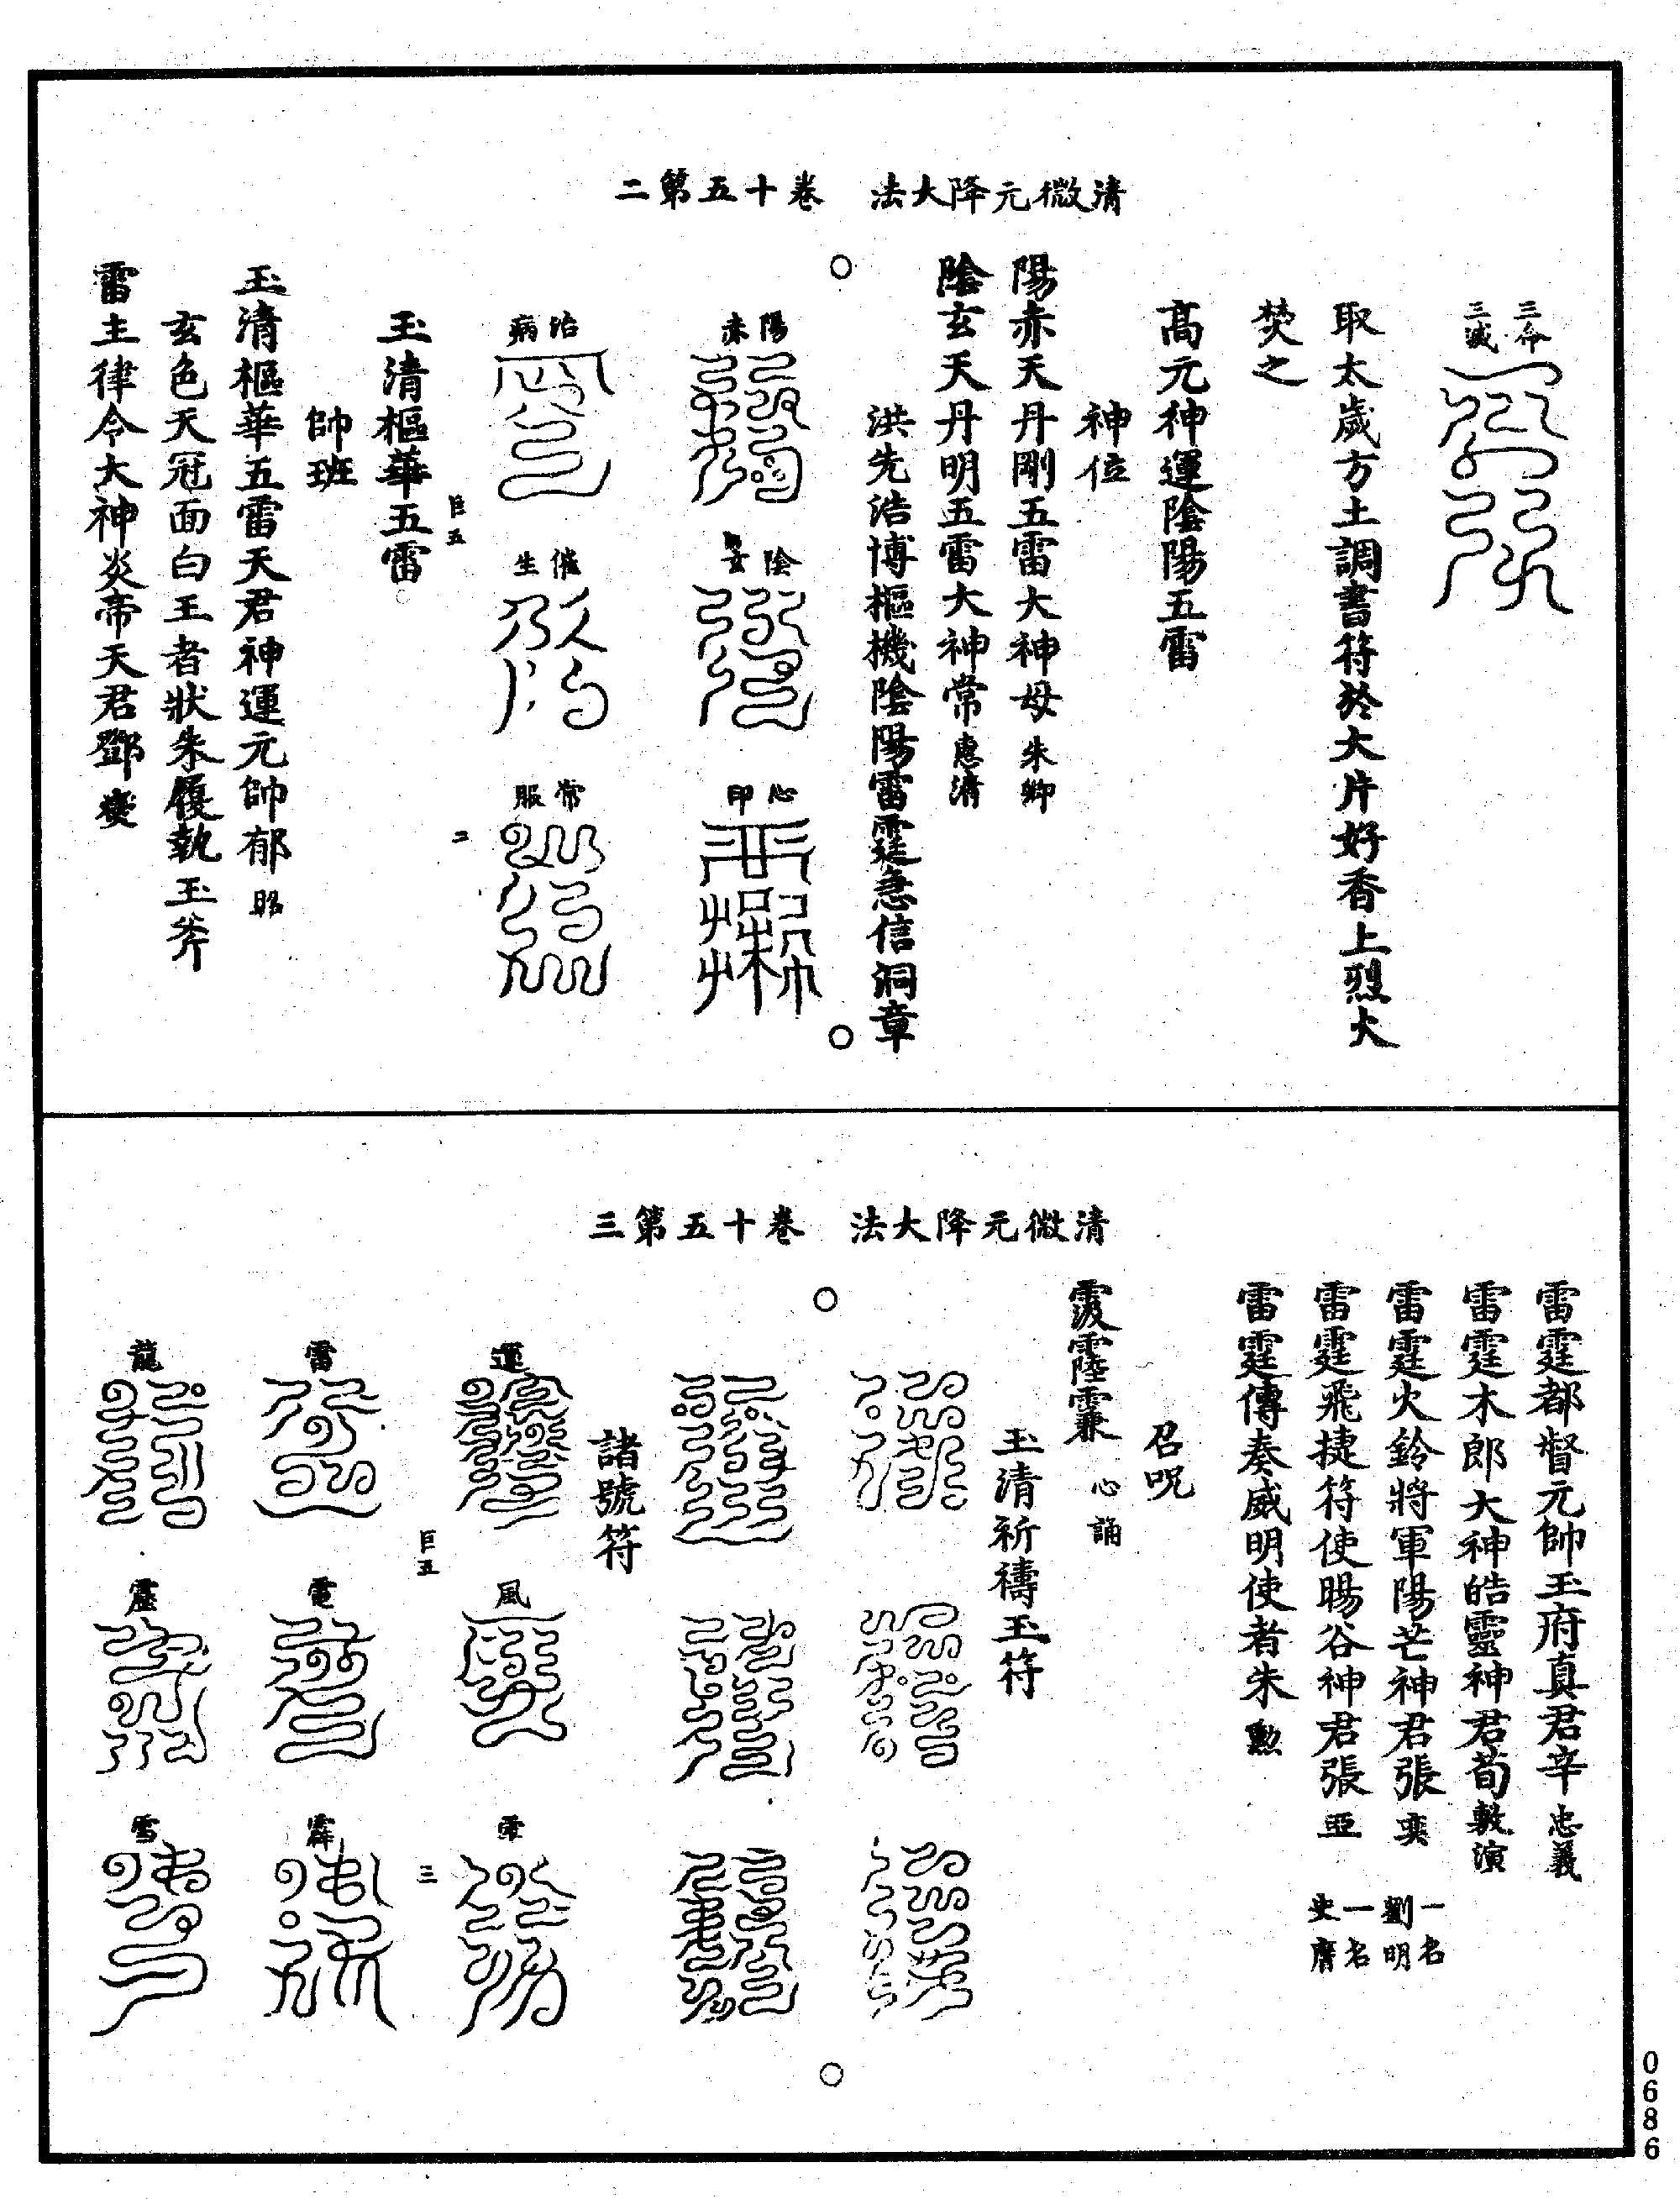 清微元降大法　卷十五第二
三命三誡
取太歲方土調書符於大片好香上烈火
焚之
高元神運陰陽五雷
神位
陽赤天丹剛五雷大神母朱卿
陰玄天丹明五雷大神常惠清
洪先浩博樞機陰陽雷霆急信洞章
陽赤
陰玄
心印
治病
催生
常服
巨五
二
玉清樞華五雷
帥班
玉清樞華五雷天君神運元帥郁昭
玄色天冠面白王者狀朱履執玉斧
雷主律令大神炎帝天君鄧燮
清微元降大法　卷十五第三
雷霆都督元帥玉府真君辛忠義
雷霆木郎大神皓靈神君荀敷演
雷霆火鈴將軍陽芒神君張奕　一名劉明
雷霆飛捷符使暘谷神君張亞　一名史膺
雷霆傳奏威明使者朱勳
召呪
心誦
玉清祈禱玉符
諸號符
運
風
巨五
三
雷
電
霹
龍
雪
0686